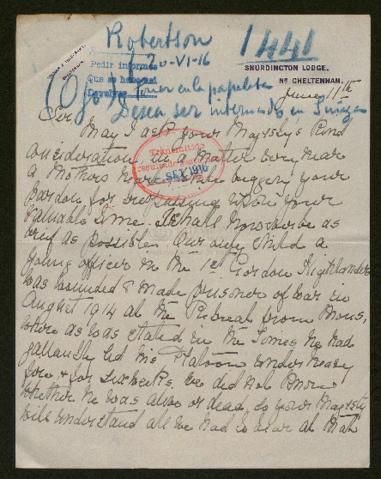 Robertson
1441
Pedir informes
20-VI-16
Que se
Devolver
Poner en la papeleta
(Ojo) Desea ser internado en Suiza
SNURDINGTON LODGE,
Nr CHELTENHAM.
June 11th
Sir
May I ask your Majesty's Kind
consideration, in a matter very near
a Mothers heart, while begging your
pardon, for
valuable time. I shall be as
brief as possible. Our only child a
young officer in the 1st Gordon Highlanders
was wounded & made prisoner of war in
August 1914 at the Retreat from Mons,
where as was stated in the Times he had
gallantly led his Platoon under heavy
fire & for six weeks, we did not know
whether he was alive or dead, so your Majesty
will understand all we had to bear at that
SET 1916